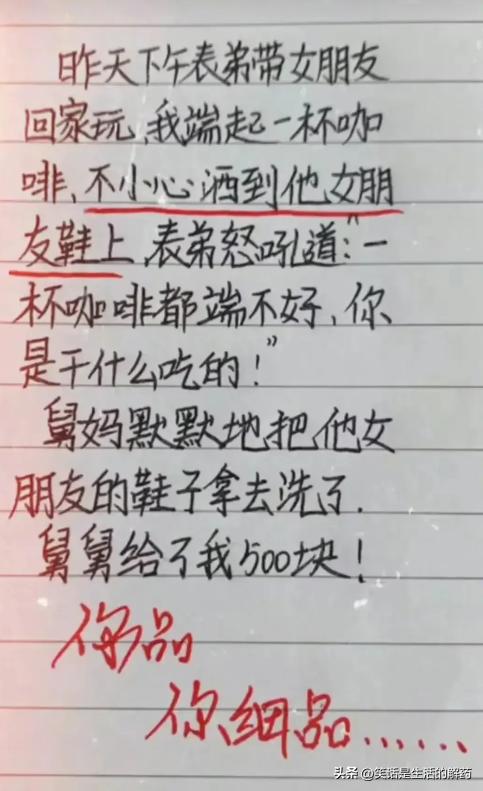 昨天下午表弟带女朋友
回家玩,我端起一杯咖
啡,不小心洒到他女朋
友鞋上,表弟怒吼道:"一
杯咖啡都端不好,你
是干什么吃的!"
舅妈默默地把他女
朋友的鞋子拿去洗了.
舅舅给了我500块!
你品
你细品......
头条 @笑话是生活的解药